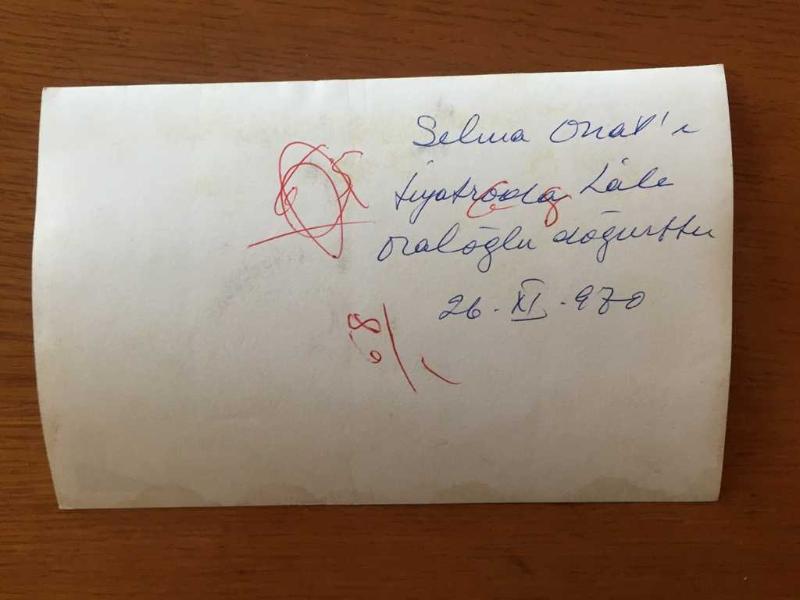 Selma Onat'ı
tiyatroda Lâle
Oraloğlu doğurttu
26. XI. 970